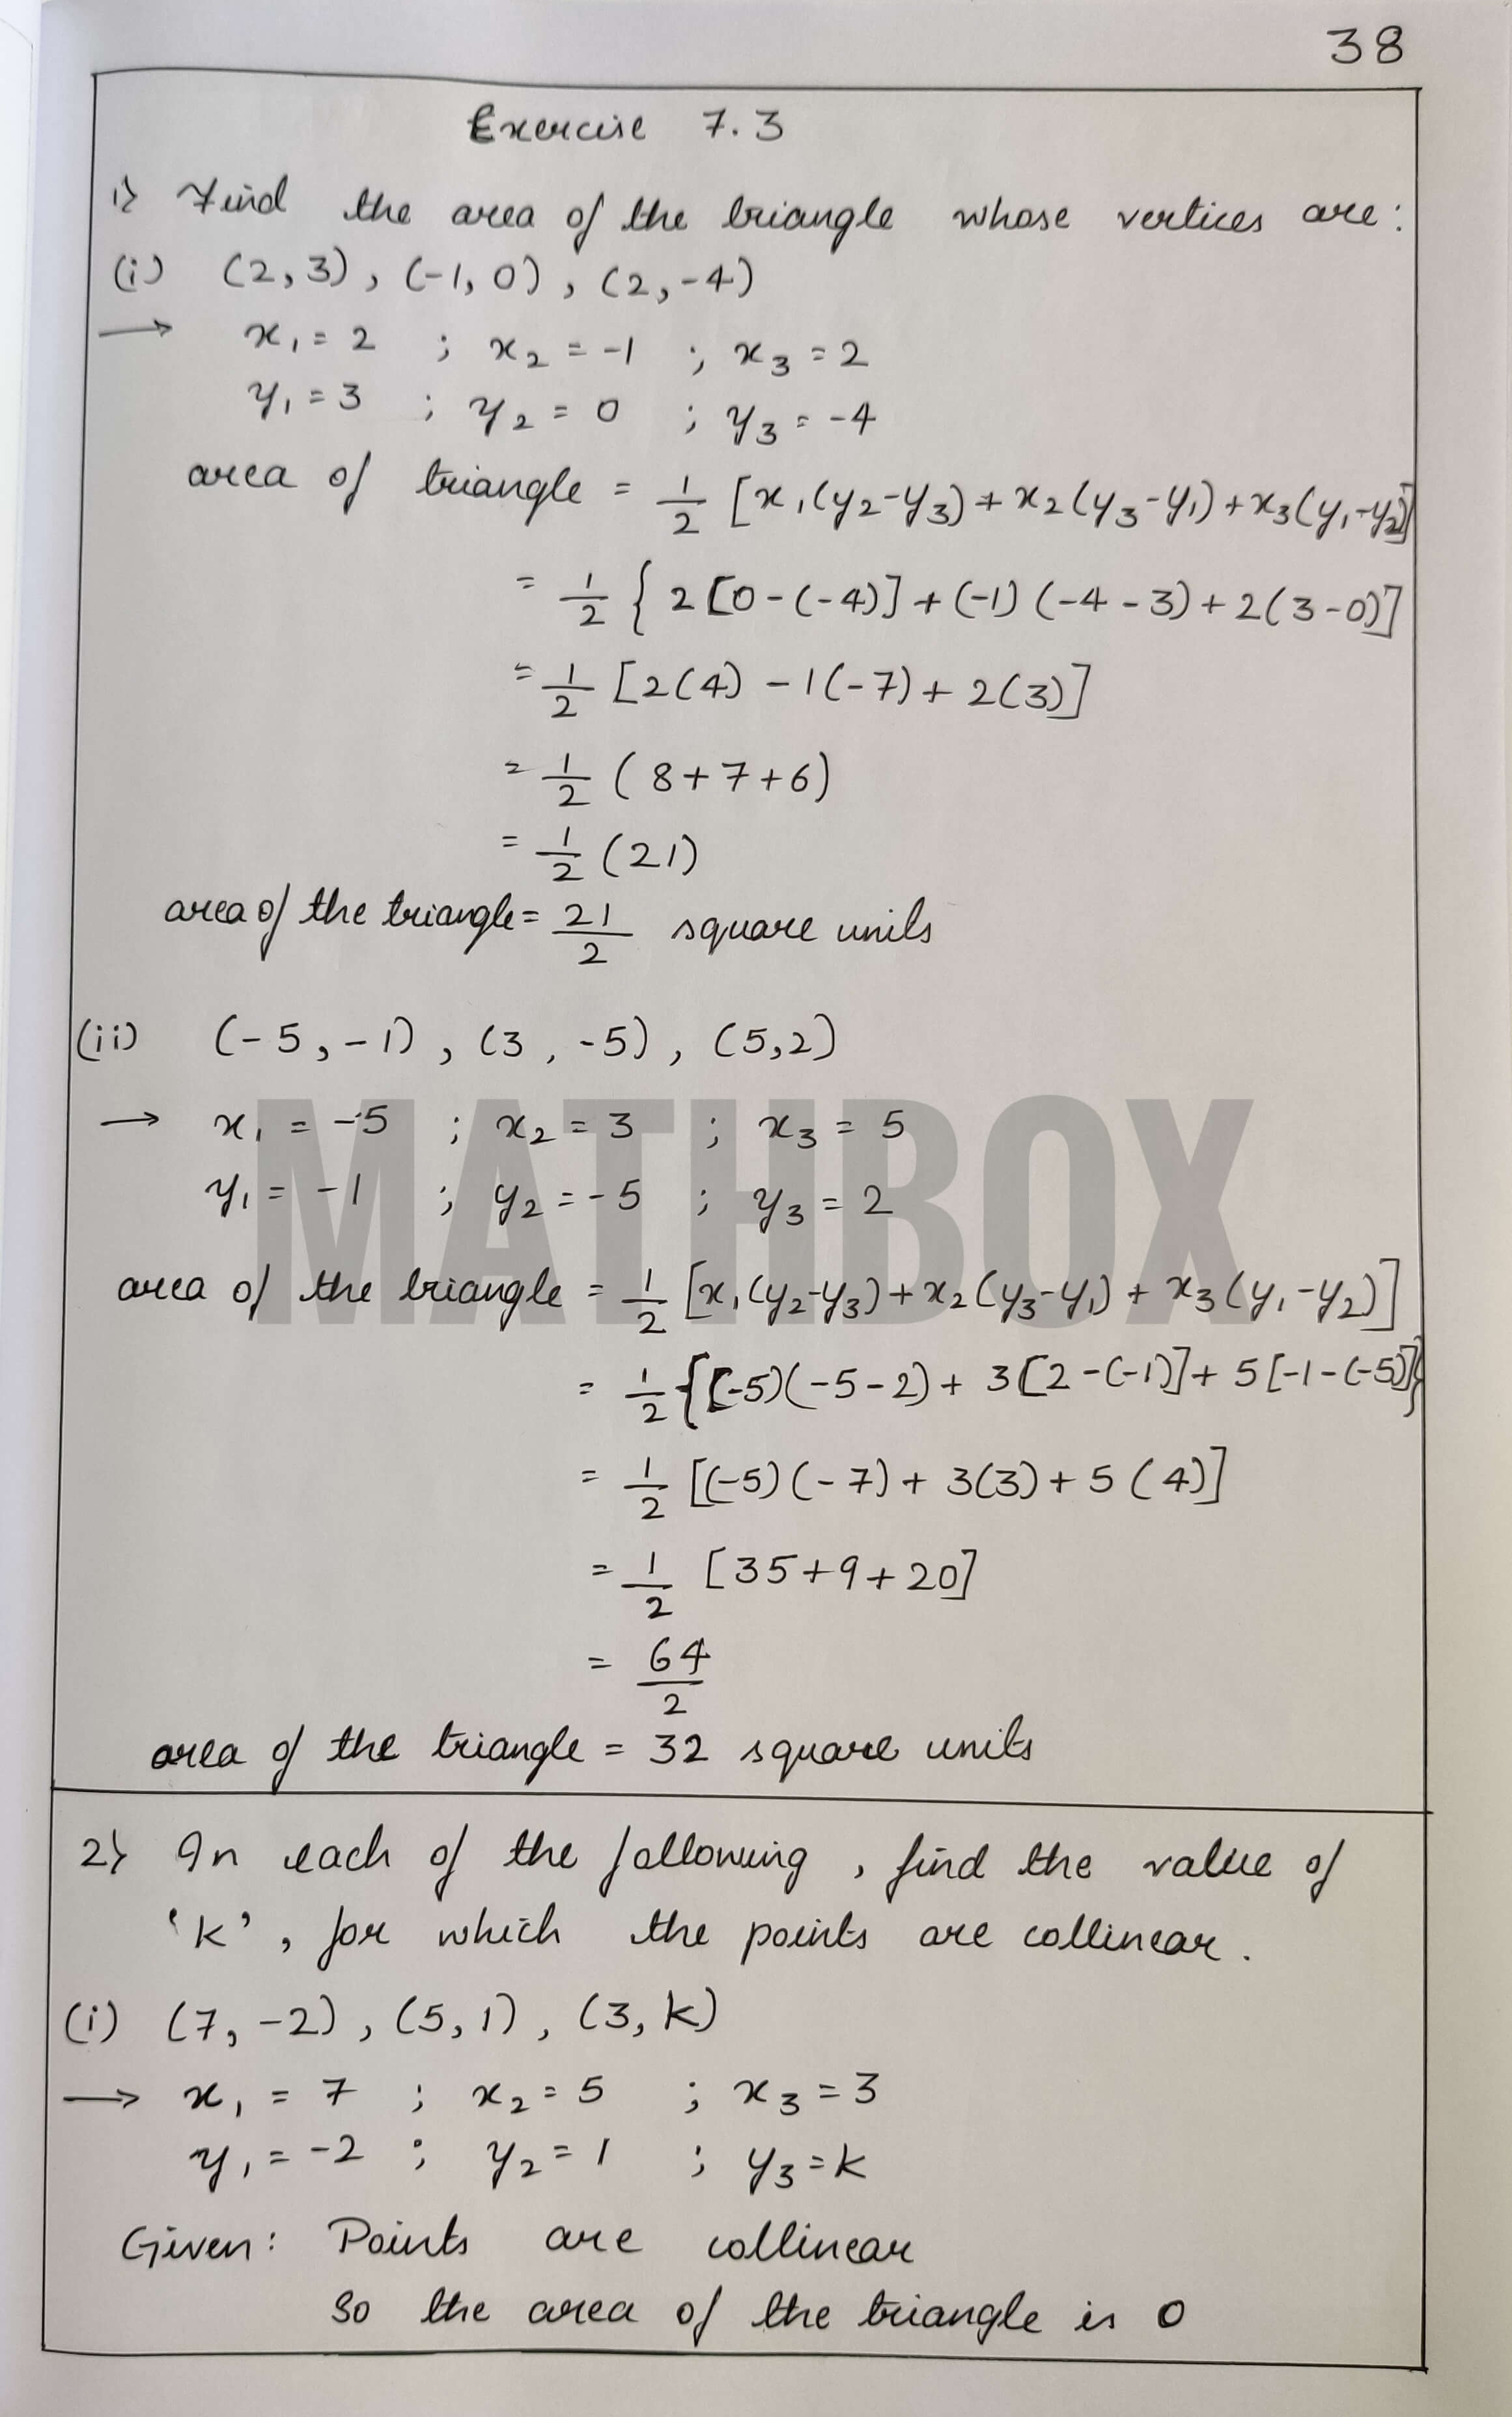 38
Exercise 7.3
1) Find the area of the triangle whose vertices are:
(i) (2,3), (-1,0), (2,-4)
→ x₁ = 2 ; x₂ = -1 ; x₃ = 2
y₁ = 3 ; y₂ = 0 ; y₃ = -4
area of triangle = 1/2 [x₁(y₂-y₃)+x₂(y₃-y₁)+x₃(y₁-y₂)]
= 1/2 { 2[0-(-4)]+(-1)(-4-3)+2(3-0)]
= 1/2 [2(4) - 1(-7)+2(3)]
= 1/2 (8+7+6)
= 1/2 (21)
area of the triangle = 21/2 square units
(ii) (-5,-1), (3,-5), (5,2)
→ x₁ = -5 ; x₂ = 3 ; x₃ = 5
y₁ = -1 ; y₂ = -5 ; y₃ = 2
MATHBOX
area of the triangle = 1/2 [x₁(y₂-y₃)+x₂(y₃-y₁)+x₃(y₁-y₂)]
= 1/2 {(-5)(-5-2)+3[2-(-1)]+5[-1-(-5)]}
= 1/2 [(-5)(-7)+3(3)+5(4)]
= 1/2 [35+9+20]
= 64/2
area of the triangle = 32 square units
2) In each of the following, find the value of
'K', for which the points are collinear.
(i) (7,-2), (5,1), (3,K)
→ x₁ = 7 ; x₂ = 5 ; x₃ = 3
y₁ = -2 ; y₂ = 1 ; y₃ = K
Given: Points are collinear
So the area of the triangle is 0